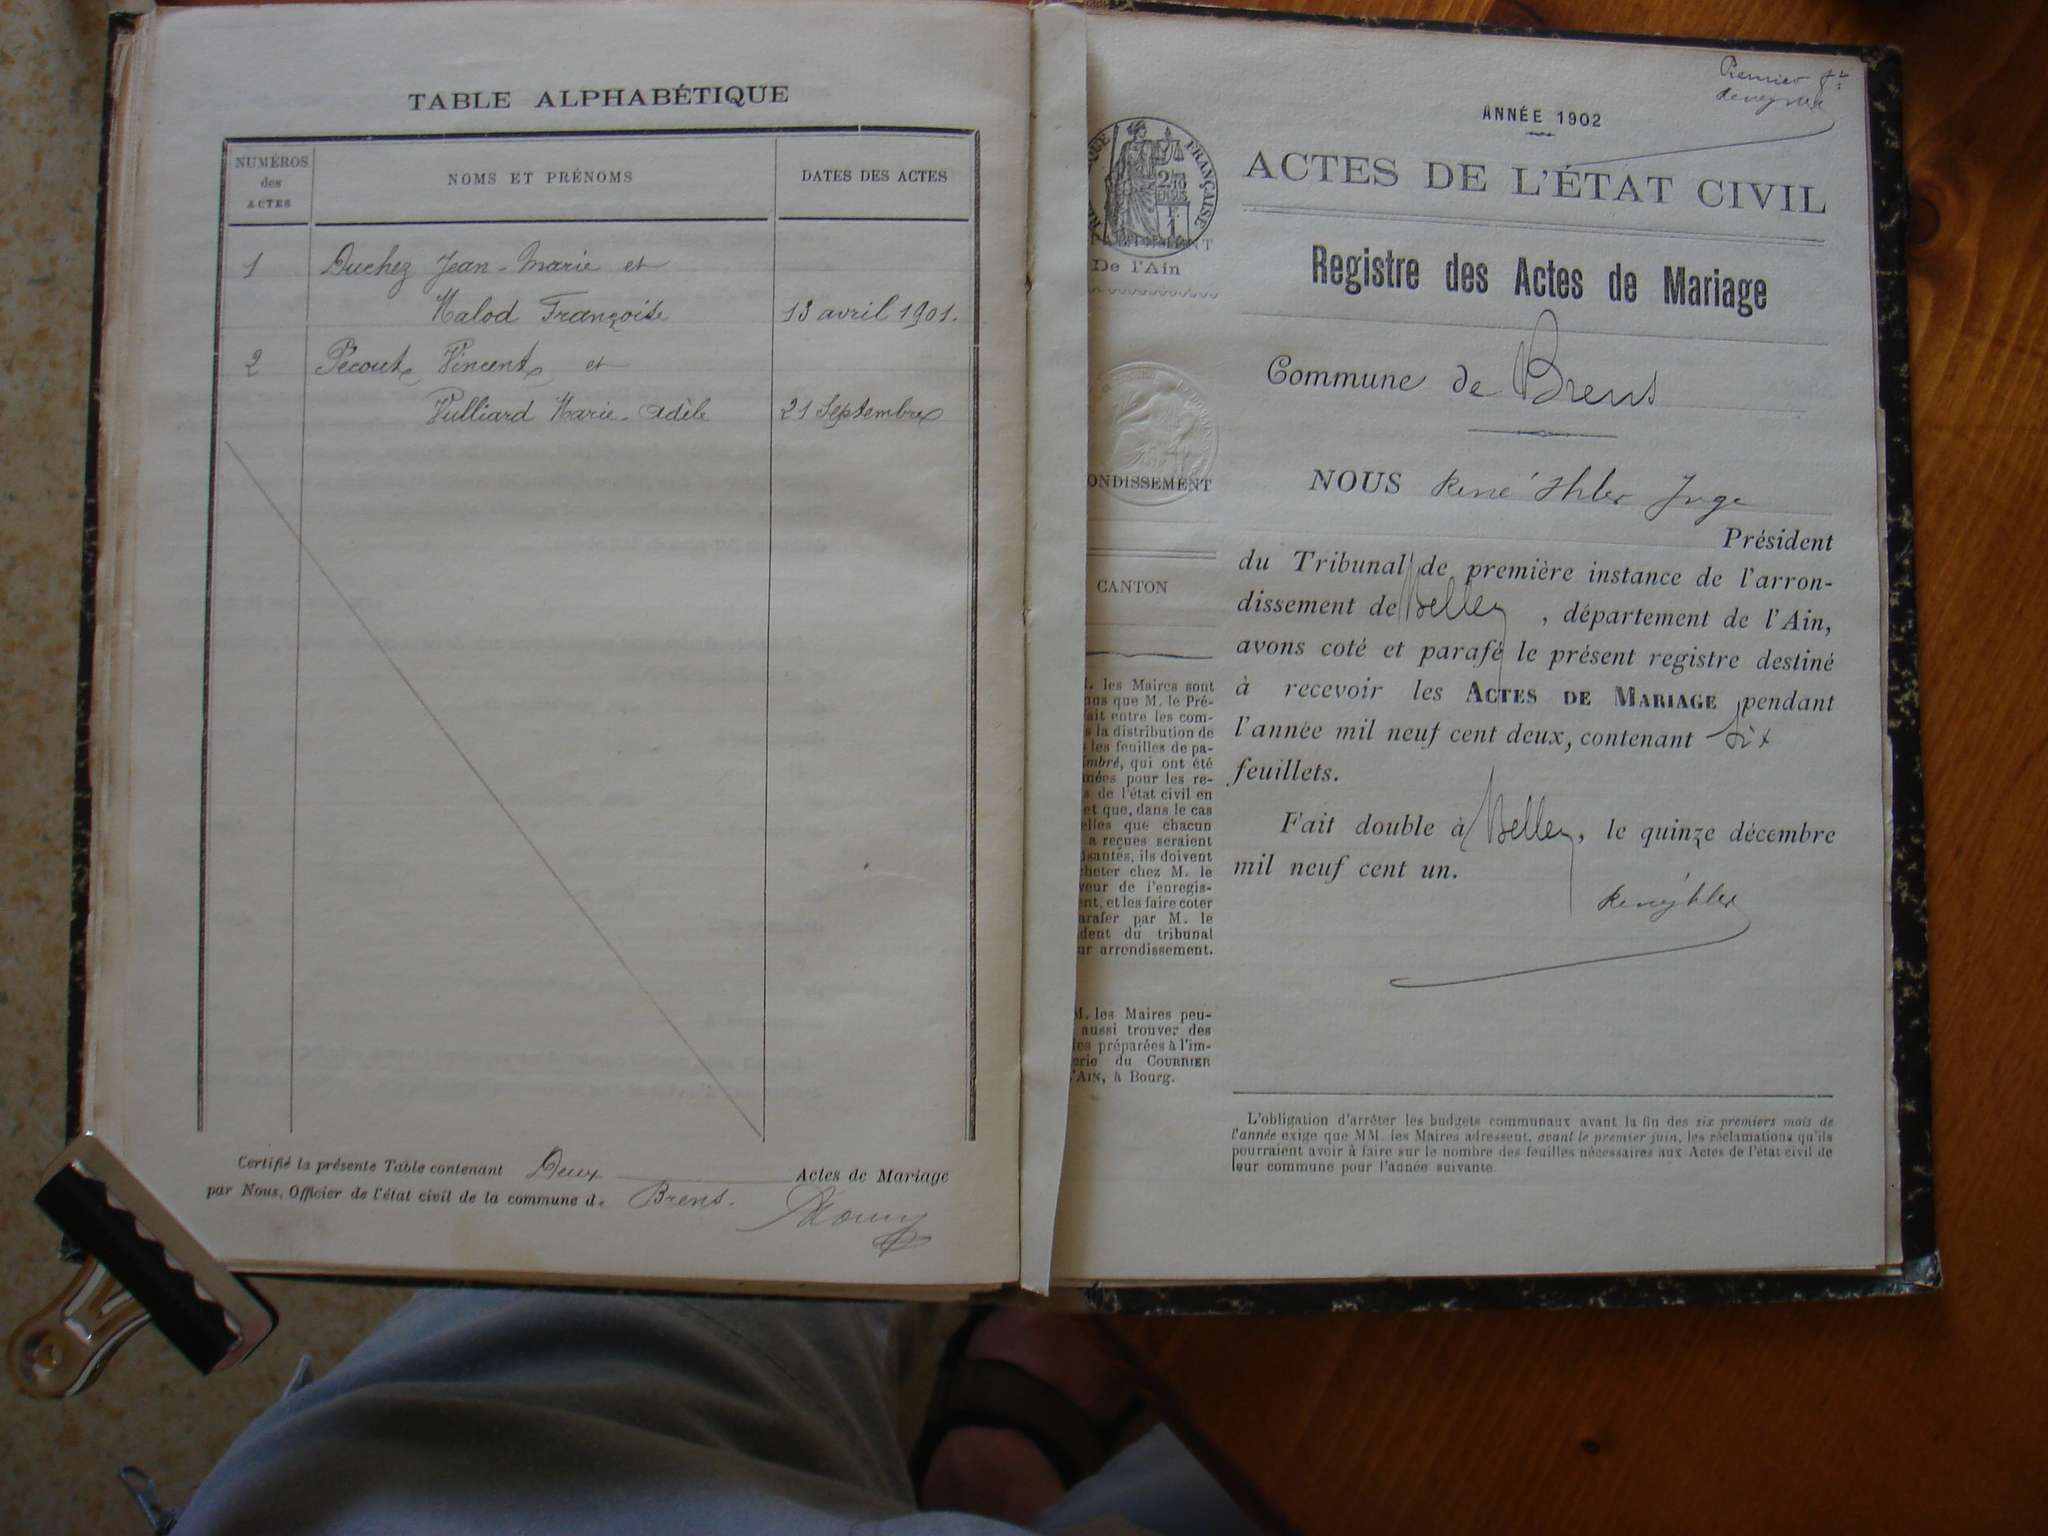 TABLE ALPHABÉTIQUE
NUMÉROS
des
ACTES
NOMS ET PRÉNOMS
DATES DES ACTES
1 Duchez Jean-Marie et
Malod Françoise 13 avril 1901.
2 Pecout Vincent et
Vulliard Marie-Adèle 21 Septembre
Certifié la présente Table contenant Deux Actes de Mariage
par Nous, Officier de l'état civil de la commune de Brens.
Premier
ANNÉE 1902
ACTES DE L'ÉTAT CIVIL
QUE FRANÇAISE
2/10
EN SUS
De l'Ain
Registre des Actes de Mariage
Commune de Brens
ONDISSEMENT
NOUS René Ihler Juge
Président
du Tribunal de première instance de l'arron-
dissement de Belley, département de l'Ain,
avons coté et parafé le présent registre destiné
à recevoir les ACTES DE MARIAGE pendant
l'année mil neuf cent deux, contenant Six
feuillets.
Fait double à Belley, le quinze décembre
mil neuf cent un.
CANTON
M. les Maires sont
nus que M. le Pré-
fait entre les com-
s la distribution de
les feuilles de pa-
mbré, qui ont été
mées pour les re-
s de l'état civil en
et que, dans le cas
elles que chacun
a reçues seraient
isantes, ils doivent
cheter chez M. le
veur de l'enregis-
ent, et les faire coter
arafer par M. le
dent du tribunal
ur arrondissement.
M. les Maires peu-
aussi trouver des
tes préparées à l'im-
erie du COURRIER
'AIN, à Bourg.
L'obligation d'arrêter les budgets communaux avant la fin des six premiers mois de
l'année exige que MM. les Maires adressent, avant le premier juin, les réclamations qu'ils
pourraient avoir à faire sur le nombre des feuilles nécessaires aux Actes de l'état civil de
leur commune pour l'année suivante.